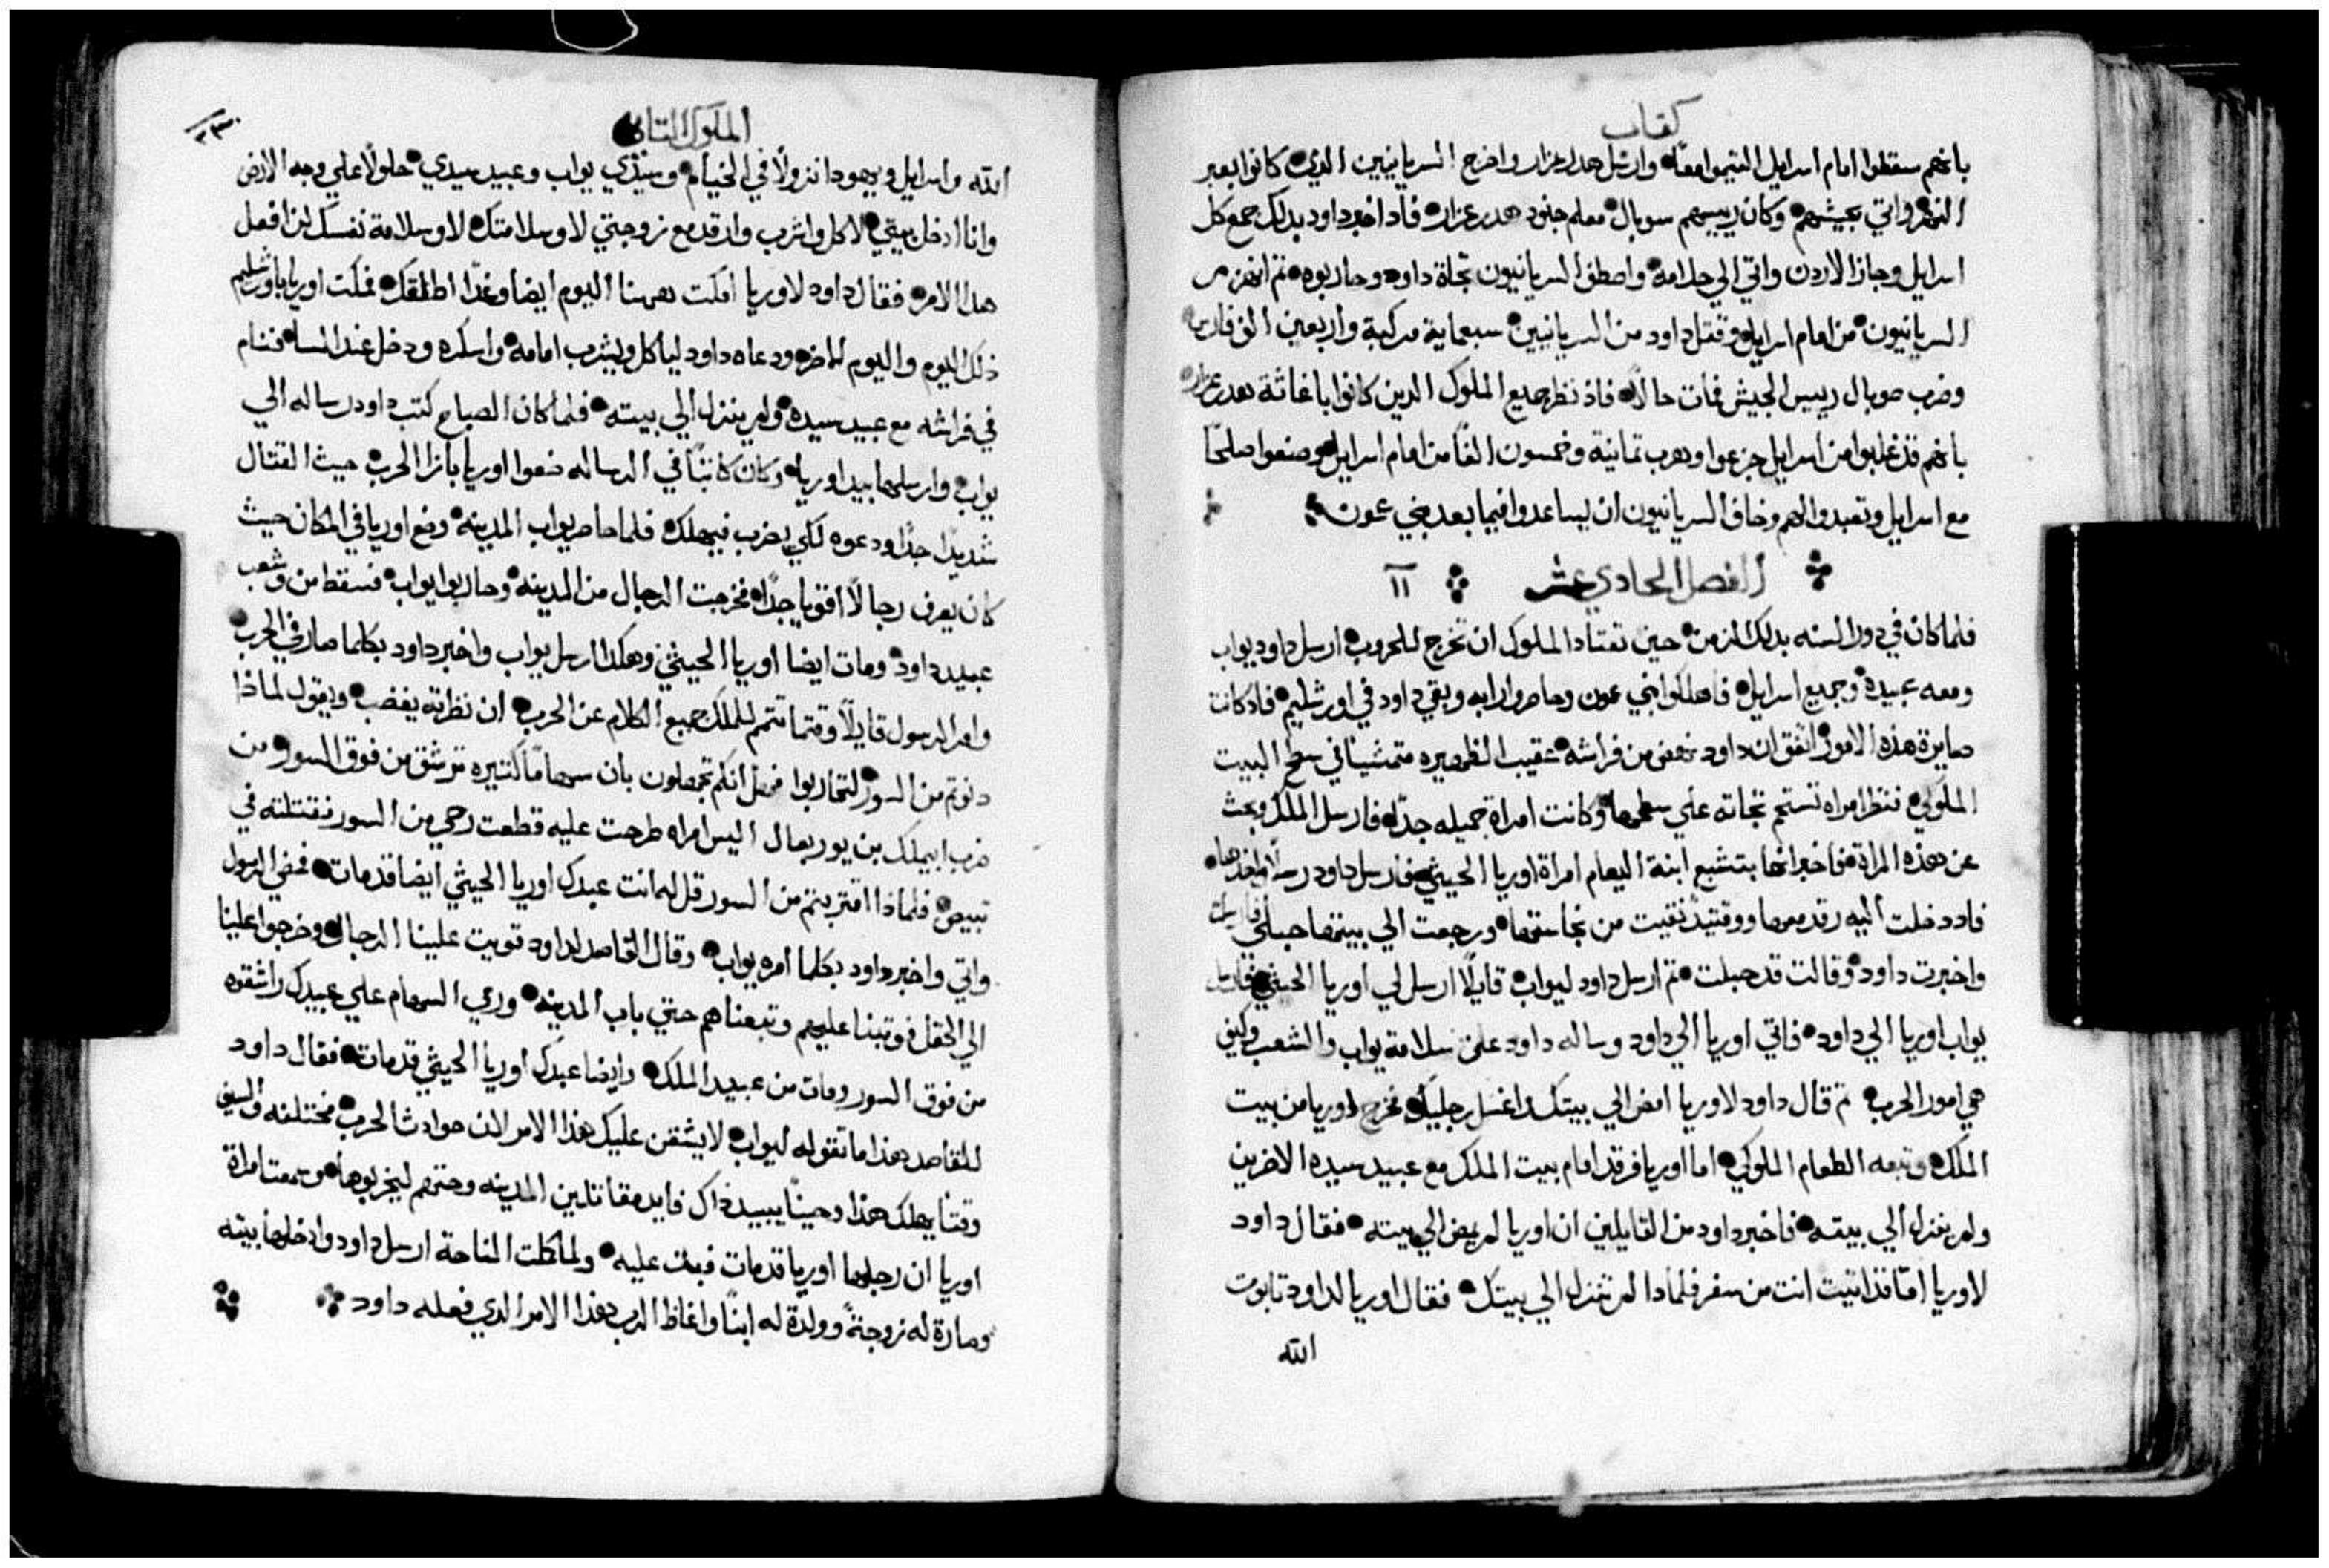 كتاب
بانهم سقطوا امام اسرايل التيموا معًا وارسل هدرعزار واخرج السريانيين الذي كانوا بعبر
النهر واتي بجيشهم وكان رييسهم سوبال معلم جنود هدرعزار فاد اخبر داود بدلك جمع كل
اسرايل وجاز الاردن واتي الي حلامه واصطف السريانيون تجاة داود وحاربوه تم انهزم
السريانيون من امام اسرايل وقتل داود من السريانيين سبعماية مركبة واربعين الف فارس
وضرب صوبال رييس الجيش فمات حالًا فاذ نظر جميع الملوك الدين كانوا باغاثة هدرعزار
بانهم قد غلبوا من اسرايل جزعوا وهرب تمانية وخمسون الفًا من امام اسرايل وصنعوا صلحًا
مع اسرايل وتعبدوا لهم وخاف السريانيون ان يساعدوا فيما بعد بني عمون
الفصل الحادي عشر ١١
فلما كان في دور السنه بدلك الزمن حين تعتاد الملوك ان تخرج للحروب ارسل داود يواب
ومعه عبيده وجميع اسرايل فاهلكوا بني عمون وحاصروا رابه وبقي داود في اورشليم فاد كانت
صايرة هذه الامور اتفق ان داود نهض من فراشه عقيب الظهيره متمشيا في سطح البيت
الملوكي فنظر امراه تستحم تجاته علي سطحها وكانت امراة جميله جدًا فارسل الملك وبحث
عن هذه المراة فاخبر انها بتشبع ابنة اليعام امراة اوريا الحيثي فارسل داود رسلًا واخدها
فاد دخلت اليه رقد معها ووقتيذٍ نقيت من نجاستها ورجعت الي بيتها حبلي فارسلت
واخبرت داود وقالت قد حبلت تم ارسل داود ليواب قايلًا ارسل لي اوريا الحيثي فارسل
يواب اوريا الي داود فاتي اوريا الي داود وساله داود علي سلامة يواب والشعب وكيف
هي امور الحرب تم قال داود لاوريا امض الي بيتك واغسل رجليك فخرج اوريا من بيت
الملك وتبعه الطعام الملوكي اما اوريا فرقد امام بيت الملك مع عبيد سيده الاخرين
ولم ينزل الي بيته فاخبر داود من القايلين ان اوريا لم يمض الي بيته فقال داود
لاوريا اما قد اتيت انت من سفر فلمادا لم تنزل الي بيتك فقال اوريا لداود تابوت
الله
الملوك التاني
الله واسرايل ويهودا نزولًا في الخيام وسيدي يواب وعبيد سيدي حلولًا علي وجه الارض
وانا ادخل بيتي لاكل واشرب وارقد مع زوجتي لا وسلامتك لا وسلامة نفسك لن افعل
هدا الامر فقال داود لاوريا امكت ههنا اليوم ايضا وغدًا اطلقك فمكت اوريا باورشليم
ذلك اليوم واليوم الاخر ودعاه داود لياكل ويشرب امامه واسكره ودخل عند المسا فنام
في فراشه مع عبيد سيده ولم ينزل الي بيته فلما كان الصباح كتب داود رساله الي
يواب وارسلها بيد اوريا وكان كاتبًا في الرساله ضعوا اوريا بازا الحرب حيث القتال
شديدًا جدًا ودعوه لكي يضرب فيهلك فلما حاصر يواب المدينه وضع اوريا في المكان حيث
كان يعرف رجالًا اقويا جدًا فخرجت الرجال من المدينه وحاربوا يواب فسقط من شعب
عبيد داود ومات ايضا اوريا الحيثي وهكدا ارسل يواب واخبر داود بكلما صار في الحرب
وامر الرسول قايلًا وقتما تتمم للملك جميع الكلام عن الحرب ان نظرته يغضب ويقول لماذا
دنوتم من السور لتحاربوا فهل انكم تجهلون بان سهامًا كتيره ترشق من فوق السور من
ضرب ابيملك بن يوربعال اليس امراه طرحت عليه قطعت رحي من السور فقتلته في
تبيص فلماذا اقتربتم من السور قل له انت عبدك اوريا الحيثي ايضا قد مات فمضي الرسول
واتي واخبر داود بكلما امره يواب وقال القاصد لداود قويت علينا الرجال وخرجوا علينا
الي الحقل فوتبنا عليهم وتبعناهم حتي باب المدينه ورمي السهام علي عبيدك راشقوه
من فوق السور ومات من عبيد الملك وايضا عبدك اوريا الحيثي قد مات فقال داود
للقاصد هذا ما تقوله ليواب لا يشقن عليك هذا الامر لان حوادث الحرب مختلفه والسيف
وقتًا يهلك هذا وحينًا يبيد ذاك فايد مقاتلين المدينه وحتهم ليخربوها وسمعت امراة
اوريا ان رجلها اوريا قد مات فبكت عليه ولما كملت المناحة ارسل داود وادخلها بيته
وصارة له زوجةً وولدة له ابنًا واغاظ الرب هذا الامر الدي فعله داود